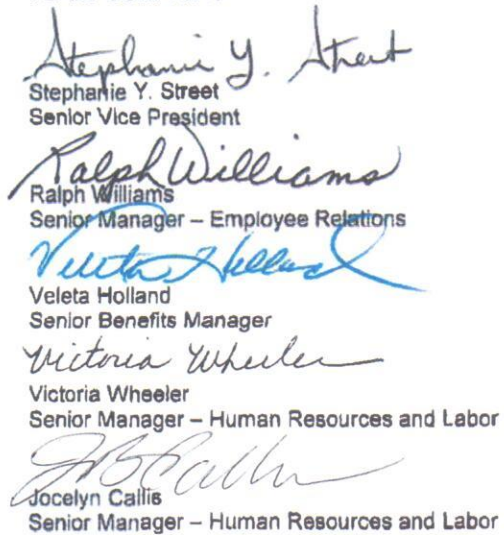 Stephanie Y. Street
Stephanie Y. Street
Senior Vice President
Ralph Williams
Ralph Williams
Senior Manager – Employee Relations
Veleta Holland
Veleta Holland
Senior Benefits Manager
Victoria Wheeler
Victoria Wheeler
Senior Manager – Human Resources and Labor
JB Callis
Jocelyn Callis
Senior Manager – Human Resources and Labor